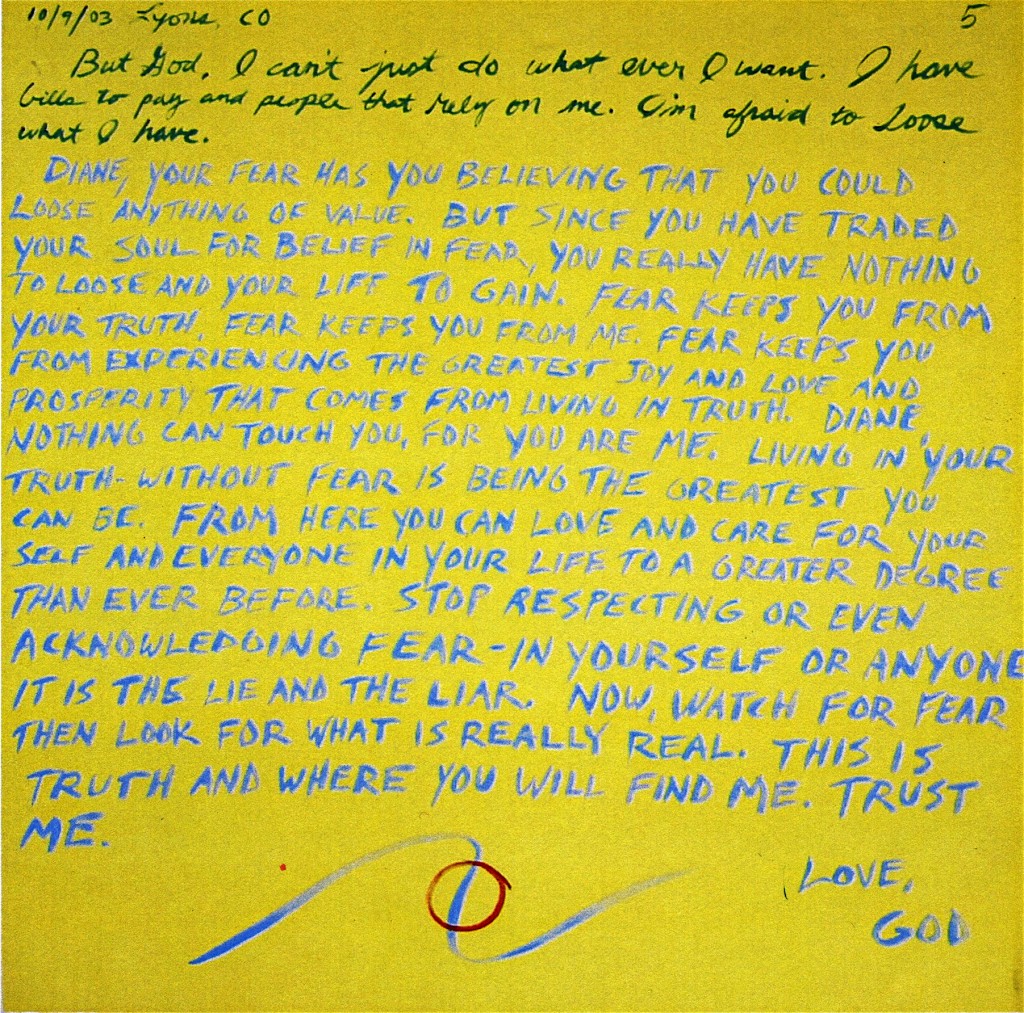 10/9/03 Lyons, CO 5
But God, I can't just do what ever I want. I have
bills to pay and people that rely on me. I'm afraid to Loose
what I have.
DIANE, YOUR FEAR HAS YOU BELIEVING THAT YOU COULD
LOOSE ANYTHING OF VALUE. BUT SINCE YOU HAVE TRADED
YOUR SOUL FOR BELIEF IN FEAR, YOU REALLY HAVE NOTHING
TO LOOSE AND YOUR LIFE TO GAIN. FEAR KEEPS YOU FROM
YOUR TRUTH, FEAR KEEPS YOU FROM ME. FEAR KEEPS YOU
FROM EXPERIENCING THE GREATEST JOY AND LOVE AND
PROSPERITY THAT COMES FROM LIVING IN TRUTH. DIANE,
NOTHING CAN TOUCH YOU, FOR YOU ARE ME. LIVING IN YOUR
TRUTH-WITHOUT FEAR IS BEING THE GREATEST YOU
CAN BE. FROM HERE YOU CAN LOVE AND CARE FOR YOUR
SELF AND EVERYONE IN YOUR LIFE TO A GREATER DEGREE
THAN EVER BEFORE. STOP RESPECTING OR EVEN
ACKNOWLEDGING FEAR-IN YOURSELF OR ANYONE
IT IS THE LIE AND THE LIAR. NOW, WATCH FOR FEAR
THEN LOOK FOR WHAT IS REALLY REAL. THIS IS
TRUTH AND WHERE YOU WILL FIND ME. TRUST
ME.
LOVE,
GOD